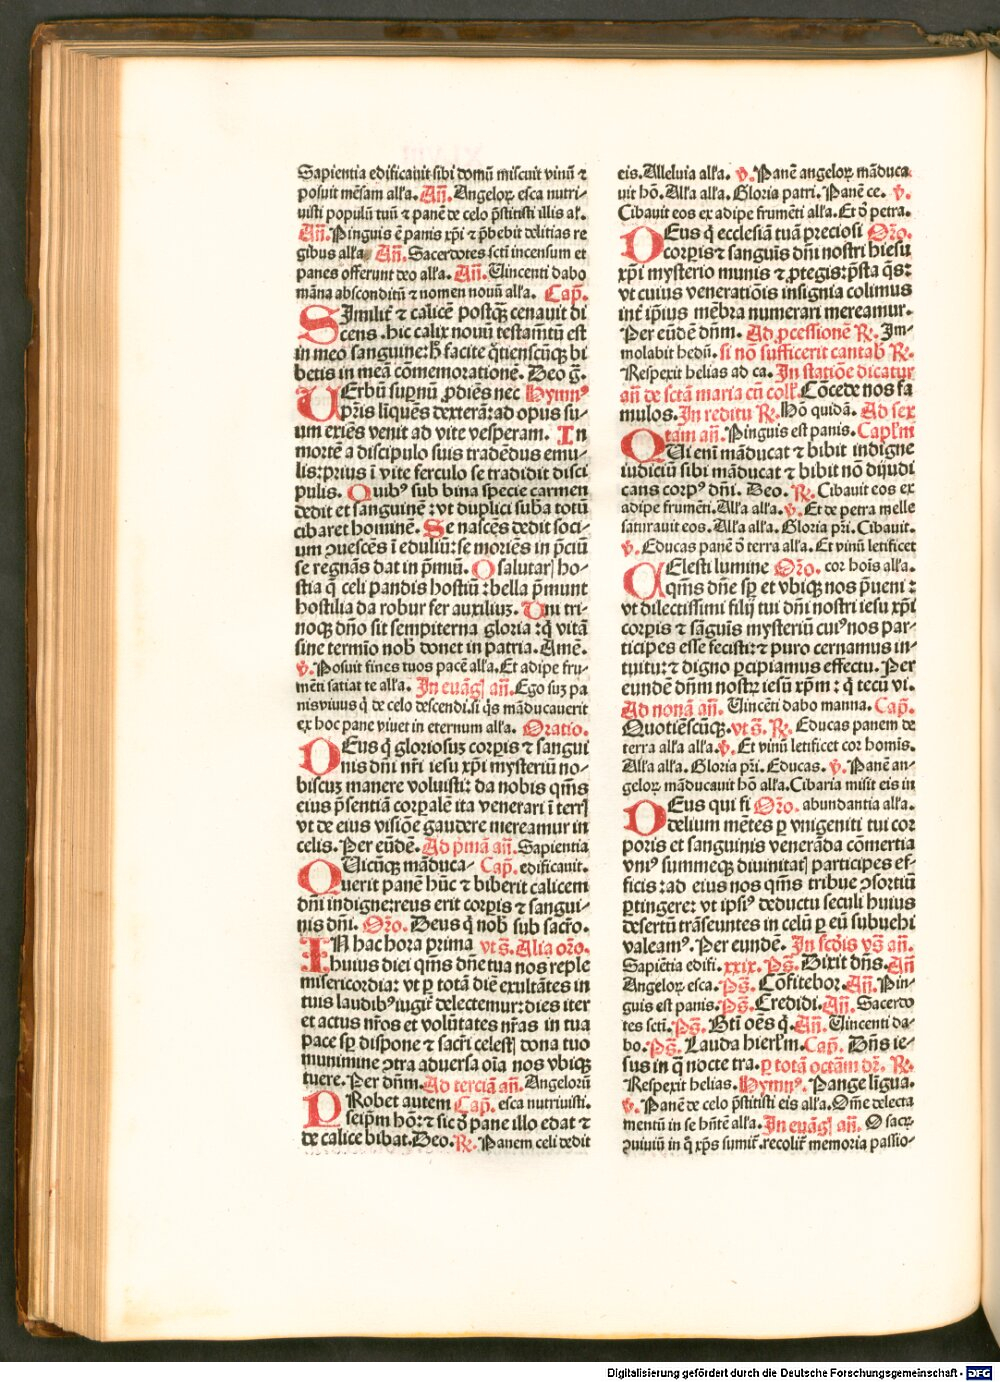 Sapientia edificauit sibi domū miscuit vinū ⁊
posuit mēsam alľa. Añ. Angeloꝝ esca nutri-
uisti populū tuū ⁊ panē de celo p̄stitisti illis aľ.
Añ. Pinguis ē panis xp̄i ⁊ p̄bebit delitias re
gibus alľa Añ. Sacerdotes sctī incensum et
panes offerunt deo alľa. Añ. Uincenti dabo
māna absconditū ⁊ nomen nouū alľa. Cap̄.
SImilit̄ ⁊ calicē postꝙ̄ cenauit di
cens. hic calix nouū testamētū est
in meo sanguine: h̄ facite q̄tienscūꝙ bi
betis in meā cōmemorationē. Deo ḡ.
UErbū suꝑnū ꝓdiēs nec Hymnꝰ
pr̄is liquēs dexterā: ad opus su-
um exiēs venit ad vite vesperam. In
mortē a discipulo suis tradēdus emu-
lis: prius ī vite ferculo se tradidit disci
pulis. Quibꝰ sub bina specie carmen
dedit et sanguinē: vt duplici sub̄a totū
cibaret hominē. Se nascēs dedit soci-
um ꝯuescēs ī eduliū: se moriēs in p̄ciū
se regnās dat in p̄miū. O salutarꝭ ho-
stia q̄ celi pandis hostiū: bella p̄munt
hostilia da robur fer auxiliuꝫ. Uni tri-
noꝙ dño sit sempiterna gloria: q̄ vitā
sine termīo nob̄ donet in patria. Amē.
v̄. Posuit fines tuos pacē alľa. Et adipe fru-
mēti satiat te alľa. In euāgꝭ añ. Ego suꝫ pa
nis viuus q̄ de celo descendi. si q̄s māducauerit
ex hoc pane viuet in eternum alľa. Oratio.
DEus q̄ gloriosuꝫ corꝑis ⁊ sangui
nis dñi nr̄i iesu xp̄i mysteriū no-
biscuꝫ manere voluisti: da nobis q̄ms
eius p̄sentiā corꝑalē ita venerari ī terꝭ
vt de eius visiōe gaudere mereamur in
celis. Per eūdē. Ad p̄mā añ. Sapientia
QUicūꝙ māduca- Cap̄. edificauit.
uerit panē hūc ⁊ biberit calicem
dñi indigne: reus erit corꝑis ⁊ sangui-
nis dñi. Oro. Deus q̄ nob̄ sub sacro.
IN hac hora prima vt s̄. Alia oro.
huius diei q̄ms dñe tua nos reple
misericordia: vt ꝑ totā diē exultātes in
tuis laudibꝰ iugit̄ delectemur: dies iter
et actus nr̄os et volūtates nr̄as in tua
pace sꝑ dispone ⁊ sacri celestꝭ dona tuo
munimine ꝯtra aduersa oīa nos vbiꝙ
tuere. Per dñm. Ad terciā añ. Angelorū
PRobet autem Cap̄. esca nutriuisti.
seip̄m hō: ⁊ sic d̄ pane illo edat ⁊
de calice bibat. Deo. ℞. Panem celi dedit
eis. Alleluia alľa. v̄. Panē angeloꝝ māduca
uit hō. Alľa alľa. Gloria patri. Panē ce. v̄.
Cibauit eos ex adipe frumēti alľa. Et d̄ petra.
DEus q̄ ecclesiā tuā preciosi Oro.
corꝑis ⁊ sanguīs dñi nostri hiesu
xp̄i mysterio munis ⁊ ꝓtegis: p̄sta q̄s:
vt cuius veneratiōis insignia colimus
int̄ ip̄ius mēbra numerari mereamur.
Per eūdē dñm. Ad ꝓcessionē ℞. Im-
molabit hedū. si nō sufficerit cantab̄ ℞.
Respexit helias ad ca. In statiōe dicatur
añ de sctā maria cū colľ. Cōcede nos fa
mulos. In reditu ℞. Hō quidā. Ad sex
tam añ. Pinguis est panis. Capľm
QUi enī māducat ⁊ bibit indigne
iudiciū sibi māducat ⁊ bibit nō dijudi
cans corpꝰ dñi. Deo. ℞. Cibauit eos ex
adipe frumēti. Alľa alľa. v̄. Et de petra melle
saturauit eos. Alľa alľa. Gloria pr̄i. Cibauit.
v̄. Educas panē d̄ terra alľa. Et vinū letificet
CElesti lumine Oro. cor hoīs alľa.
q̄ms dñe sꝑ et vbiꝙ nos p̄ueni:
vt dilectissimi filij tui dñi nostri iesu xp̄i
corꝑis ⁊ sāguīs mysteriū cuiꝰ nos par-
ticipes esse fecisti: ⁊ puro cernamus in-
tuitu: ⁊ digno ꝑcipiamus effectu. Per
eundē dñm nostꝝ iesū xp̄m: q̄ tecū vi.
Ad nonā añ. Uincēti dabo manna. Cap̄.
Quotiēscūꝙ. vt s̄. ℞. Educas panem de
terra alľa alľa. v̄. Et vinū letificet cor homīs.
Alľa alľa. Gloria pr̄i. Educas. v̄. Panē an-
geloꝝ māducauit hō alľa. Cibaria misit eis in
DEus qui fi Oro. abundantia alľa.
delium mētes ꝑ vnigeniti tui cor
poris et sanguinis venerāda cōmertia
vniꝰ summeꝙ diuinitatꝭ participes ef-
ficis: ad eius nos q̄ms tribue ꝯsortiū
ꝑtingere: vt ipsiꝰ deductu seculi huius
desertū trāseuntes in celū ꝑ eū subuehi
valeamꝰ. Per eundē. In scd̄is vꝰ añ.
Sapiētia edifi. xxix. Ps̄. Dixit dñs. Añ
Angeloꝝ esca. Ps̄. Cōfitebor. Añ. Pin-
guis est panis. Ps̄. Credidi. Añ. Sacerdo
tes scti. Ps̄. Bti oēs q̄. Añ. Uincenti da-
bo. Ps̄. Lauda hierľm. Cap̄. Dñs ie-
sus in q̄ nocte tra. ꝑ totā octām dr̄. ℞.
Respexit helias. Hymnꝰ. Pange līgua.
v̄. Panē de celo p̄stitisti eis alľa. Om̄e delecta
mentū in se hn̄tē alľa. In euāgꝭ añ. O sacꝝ
ꝯuiuiū in q̄ xp̄s sumit̄. recolit̄ memoria passio-
Digitalisierung gefördert durch die Deutsche Forschungsgemeinschaft - DFG